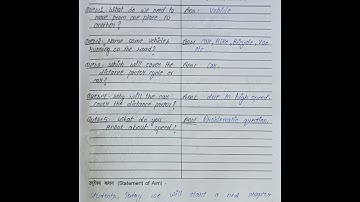 Ques1. What do we need to Ans: Vehicle
move from one place to
another?
Ques2. Name some vehicles Ans: Car, Bike, Bicycle, Van
running on the road? etc.
Ques3. Which will cover the Ans: Car.
distance faster cycle or
car?
Ques4. Why will the car Ans: due to high speed.
cover the distance faster?
Ques5. What do you Ans: Problematic question.
know about speed?
उद्देश्य कथन (Statement of Aim) -
Students, Today we will start a new chapter